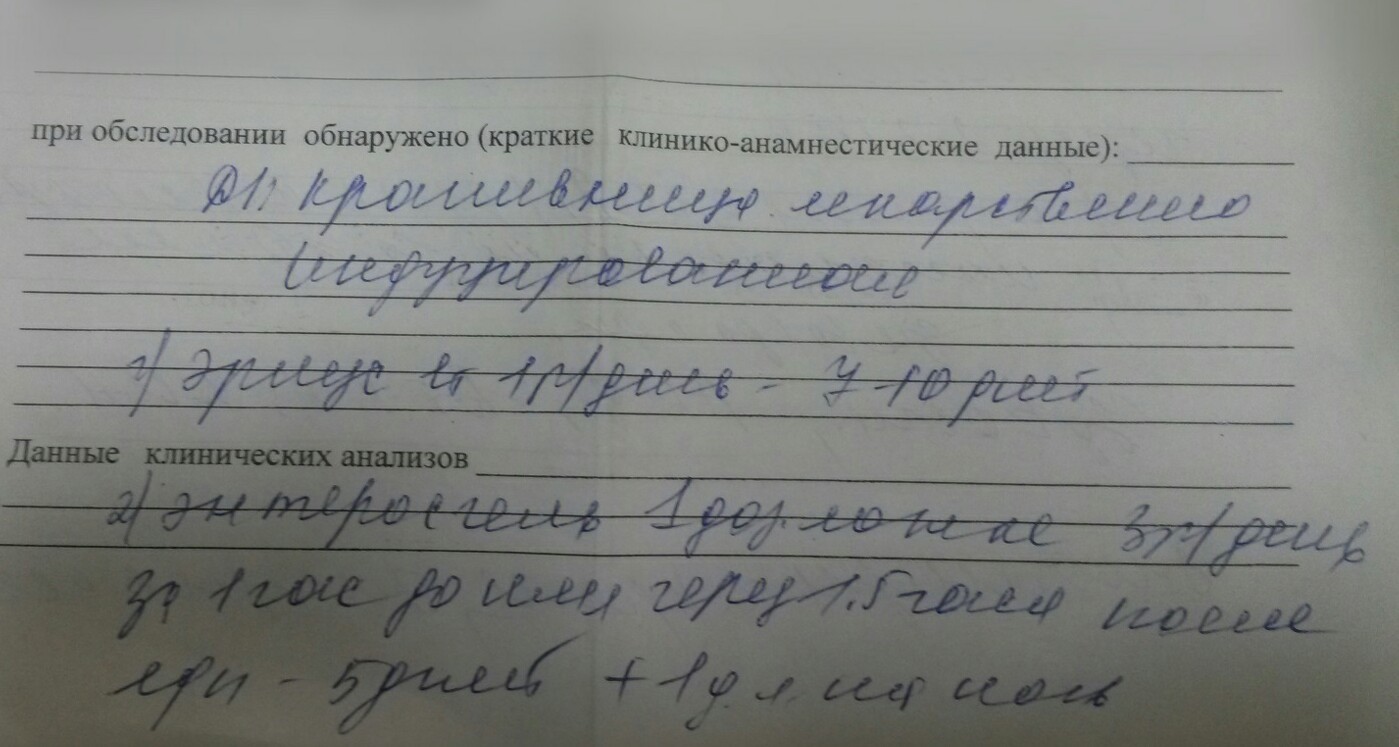 при обследовании обнаружено (краткие клинико-анамнестические данные):
Ds: крапивница лекарственно
индуцированная
1) Эриус 1т 1р/день - 7-10 дней
Данные клинических анализов
2) Энтеросгель 1 дез. ложке 3р/день
За 1 час до или через 1.5 часа после
еды - 5 дней + 1 д.л. на ночь